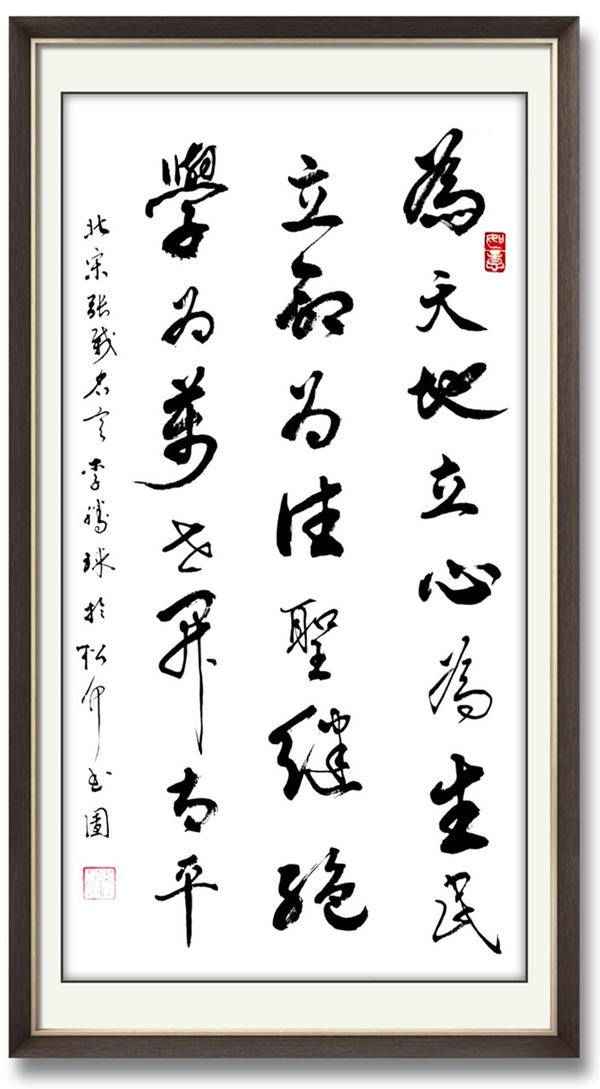 為天地立心為生民
立命为往聖繼絕
學为萬世開太平
北宋張載名言李球於松竹書園
如意